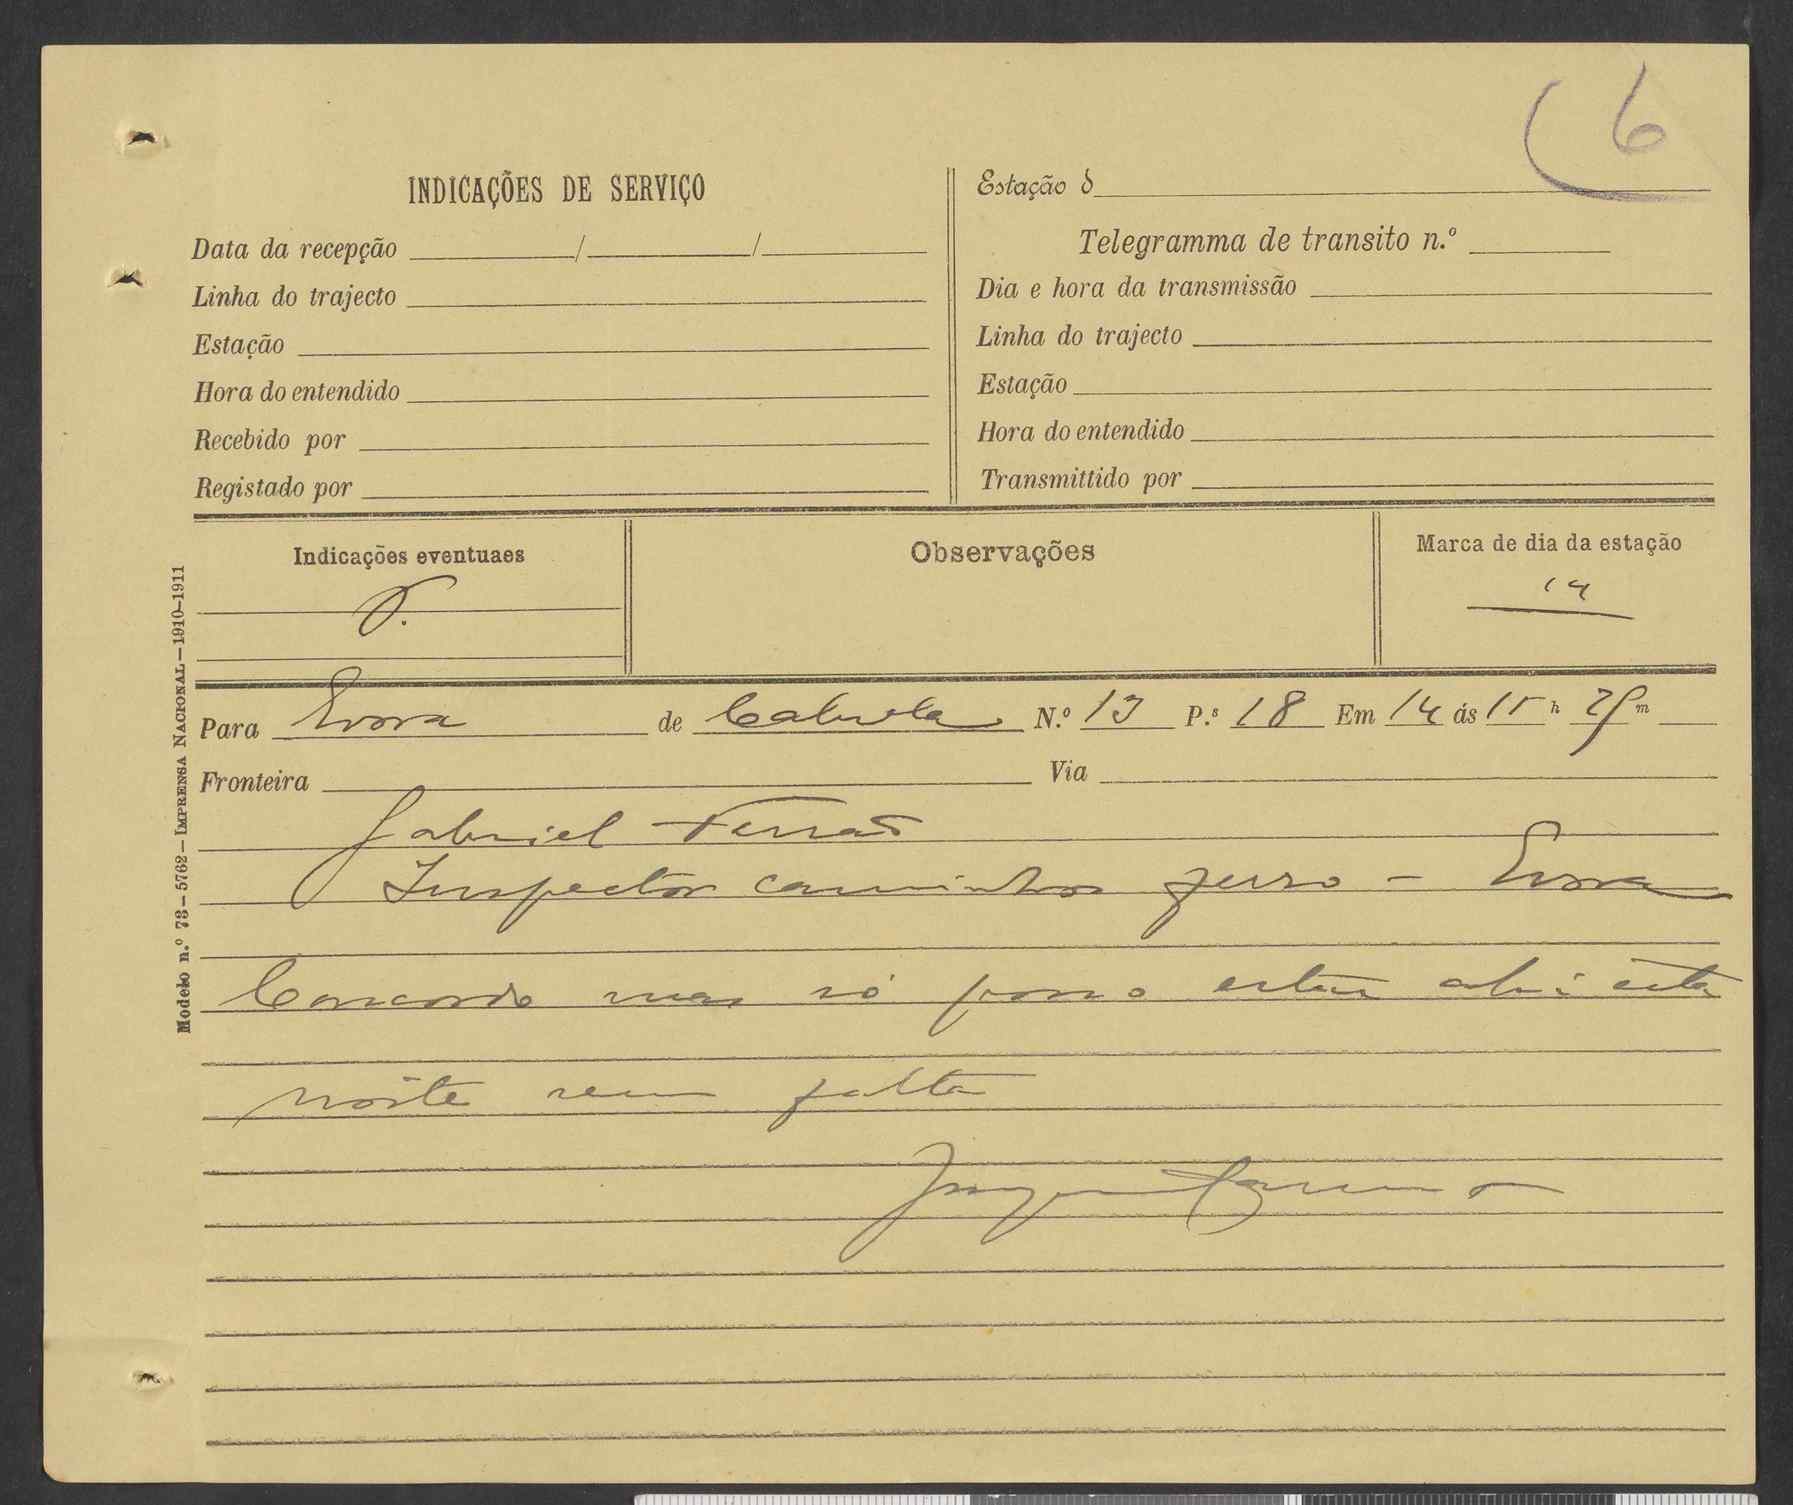 6
INDICAÇÕES DE SERVIÇO
Data da recepção / /
Linha do trajecto
Estação
Hora do entendido
Recebido por
Registado por
Estação d
Telegramma de transito n.º
Dia e hora da transmissão
Linha do trajecto
Estação
Hora do entendido
Transmittido por
Indicações eventuaes
Observações
Marca de dia da estação
14
Modelo n.º 73–5762–IMPRENSA NACIONAL–1910-1911
Para Evora de Cabrela N.º 13 P.s 18 Em 14 ás 15 h 25 m
Fronteira Via
Gabriel Ferrão
Inspector caminhos ferro – Evora
Concordo mas só posso estar ahi esta
noite sem falta